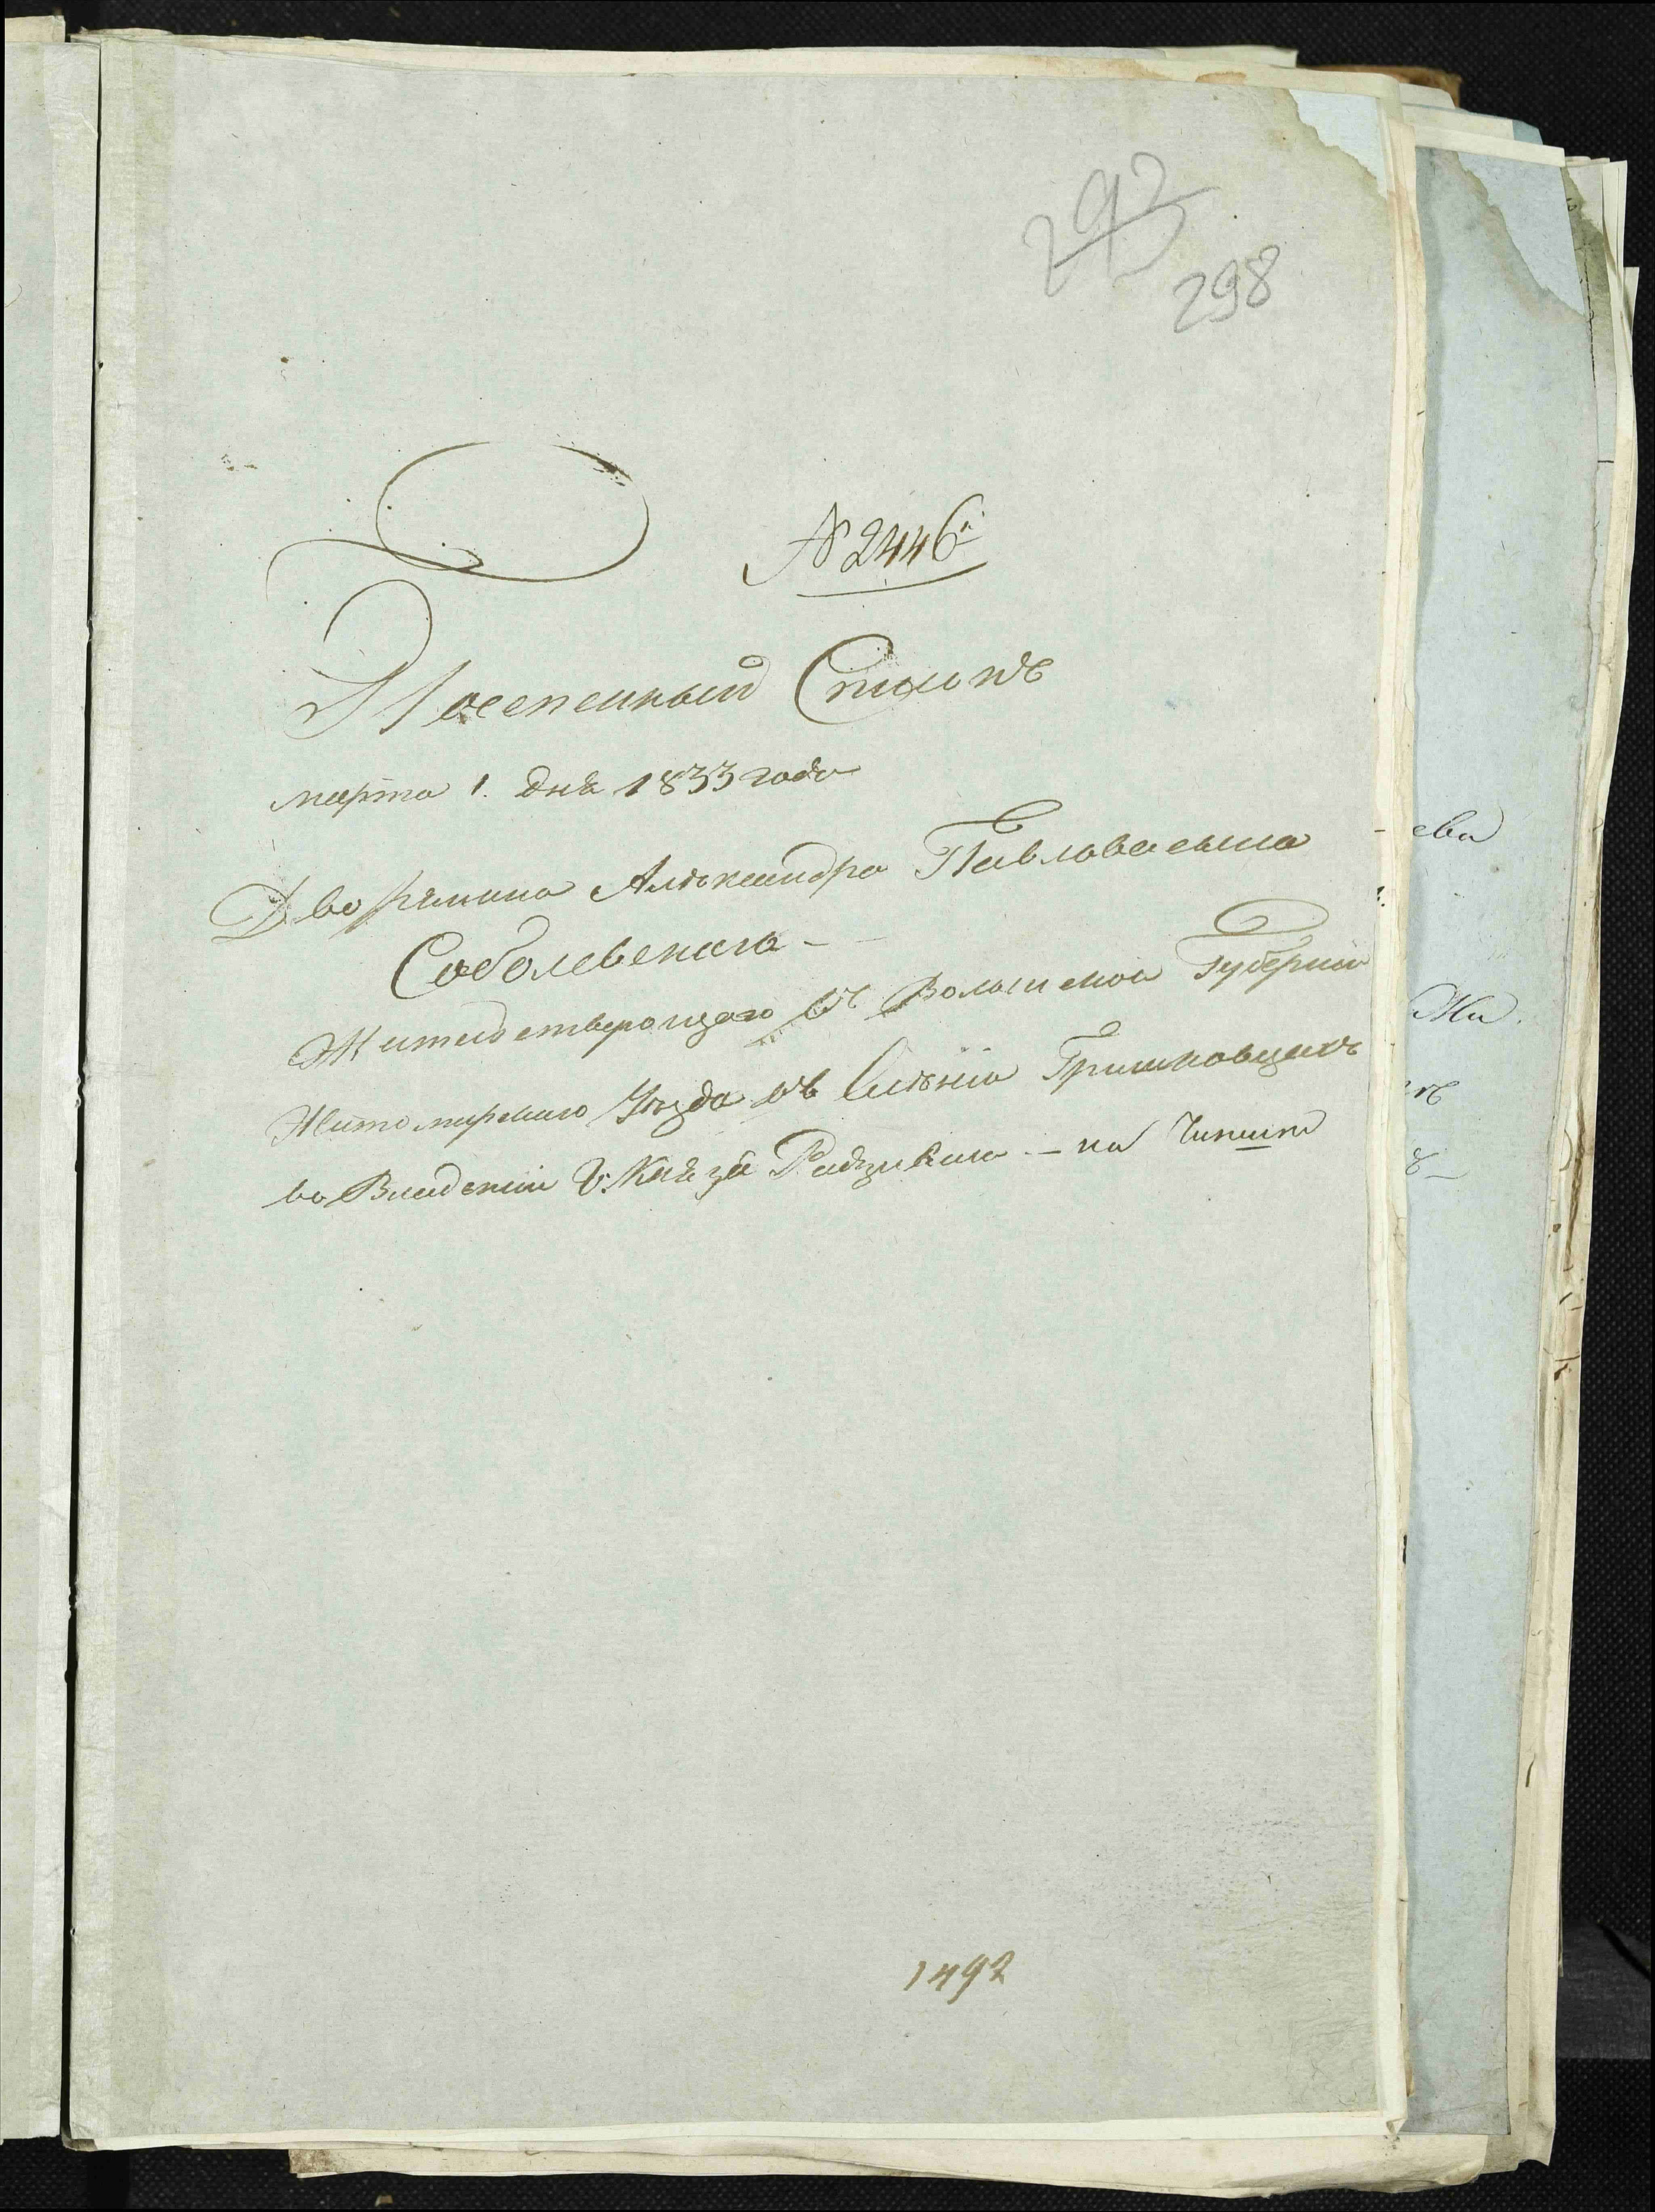 293
298
№ 2446й
Посемейный Списокъ
марта 1. дня 1833 года
Дворянина Алѣксандра Павлова сына
Соболевскаго -
Жительствующаго въ Волынской Губерніи
Житомирскаго Уѣзда въ Селѣніи Гришковцахъ
во Владеніи У. Князя Радзивила - на Чинше
1492
ева